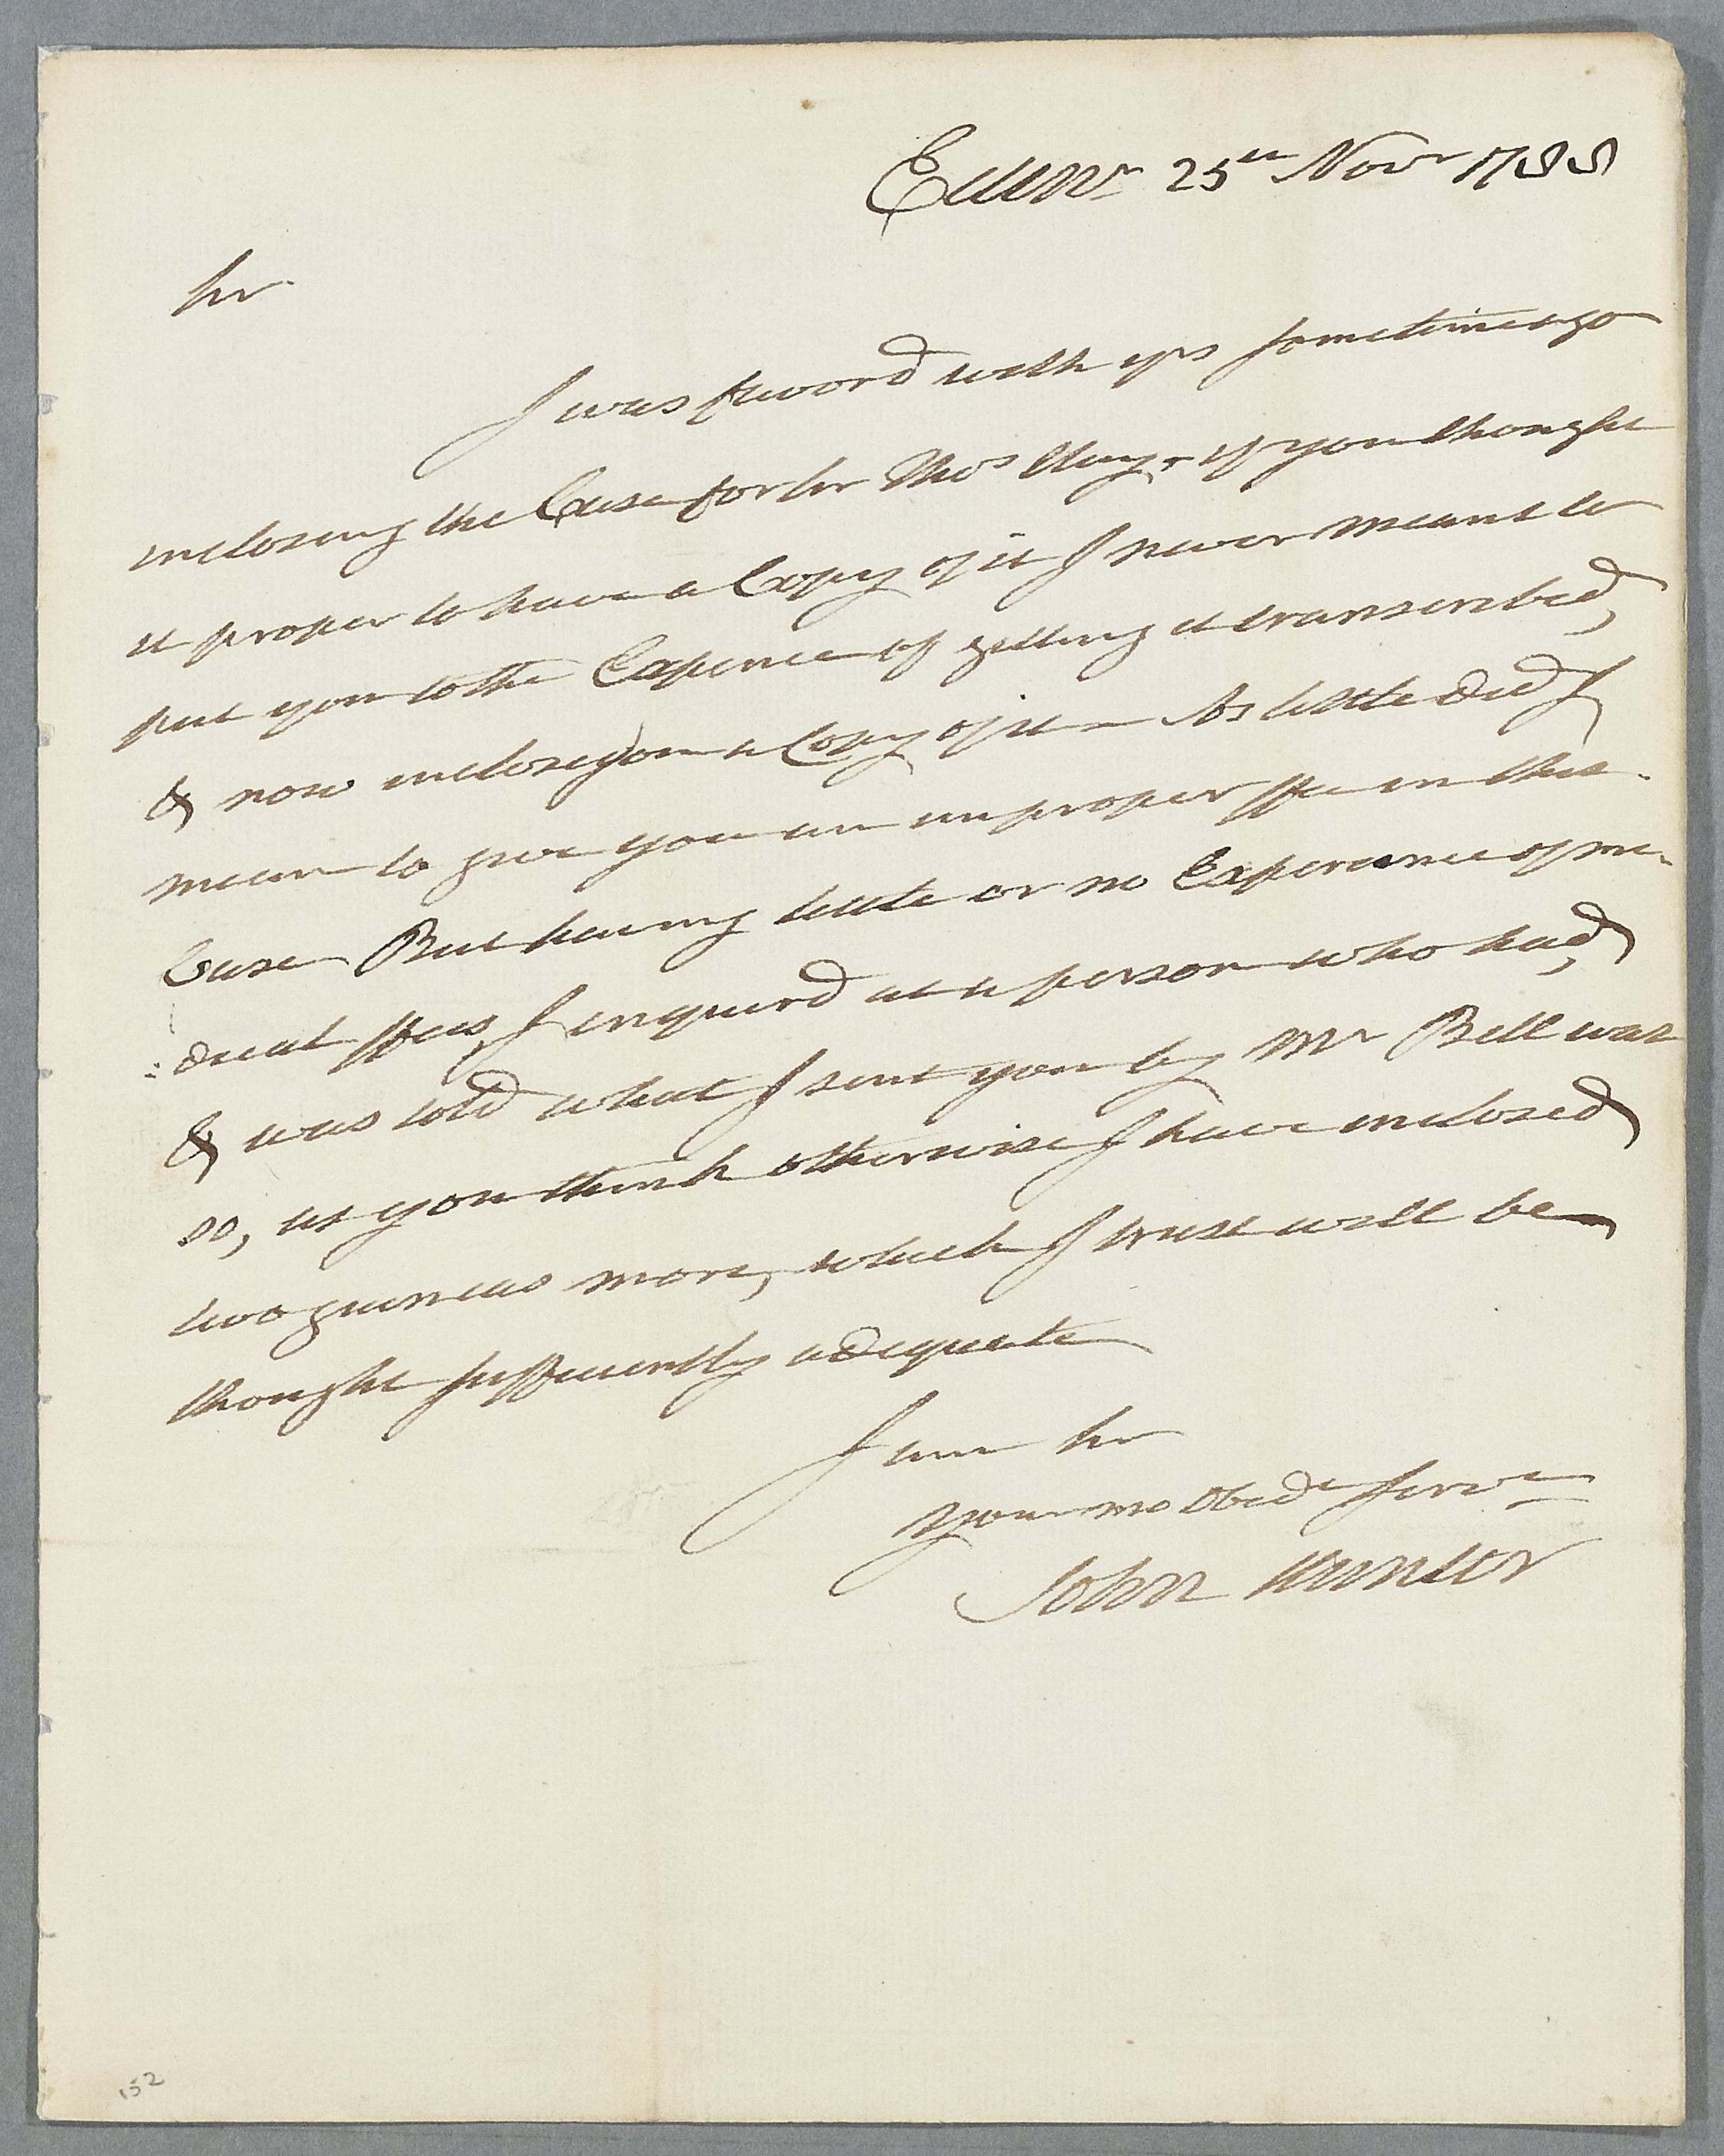 Edinr. 25th Novr 1788
Sir
I was favord with yrs sometime ago
inclosing the Case for Sir Thos if you thought
it proper to have a Copy of it I never meant to
put you to the Expence of getting it transcribed,
& now inclose you a Copy of it – As little did I
mean to give you an improper ffee in this
Case But having little or no Experience of me-
:dical ffees, I enquird at a person who had,
& was told what I sent you by Mr Bell was
so, as you think otherwise I have inclosed
two guineas more, which I trust will be
thought sufficiently adequate
I am Sir
Your mo Obedt Servt
John Hunter
152